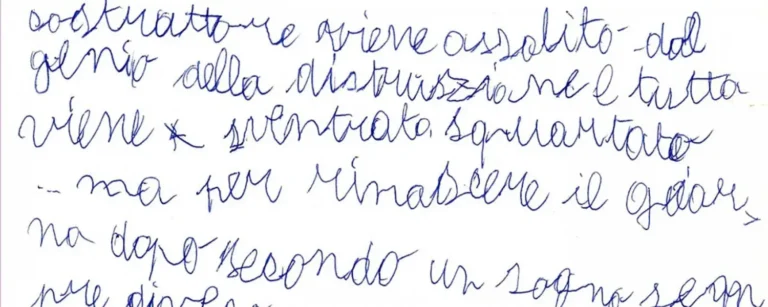 costruttore viene assalito dal
genio della distruszione e tutta
viene sventrata squartato
... ma per rinascere il gior,
na dopo secondo un sogna sem
pre diver